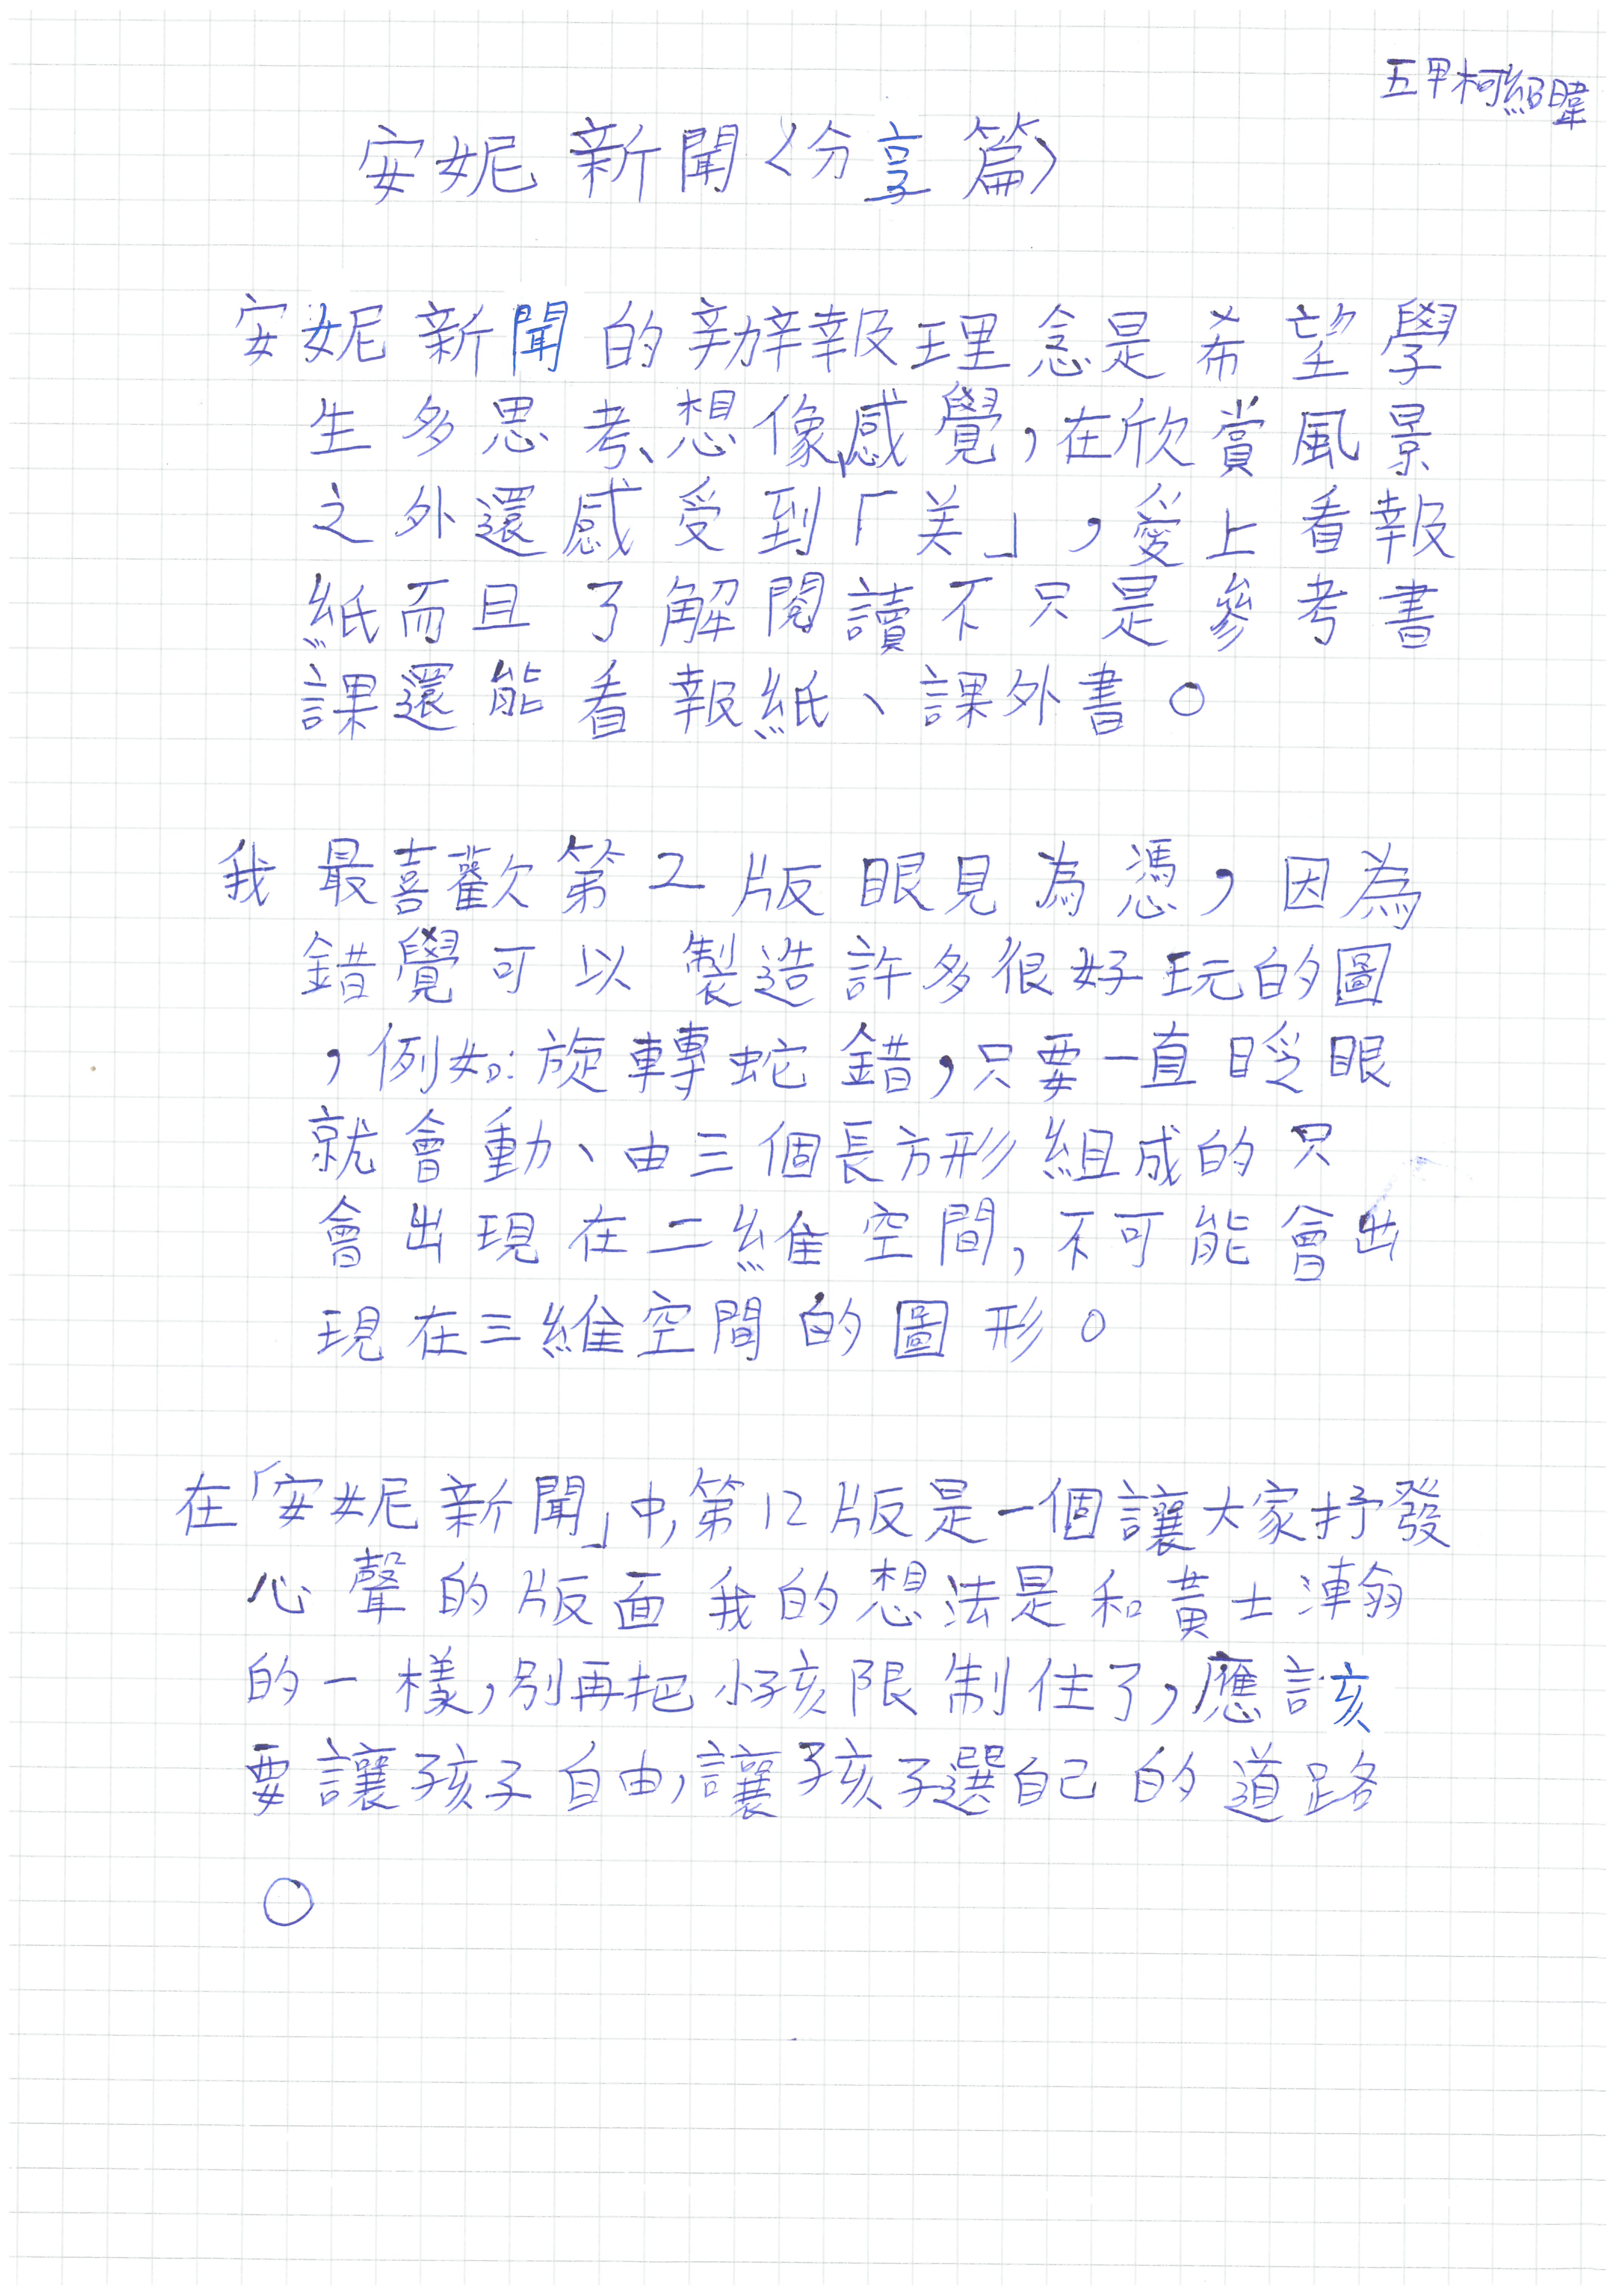 五甲柯紹暐
安妮新聞〈分享篇〉
安妮新聞的辦報理念是希望學
生多思考、想像、感覺,在欣賞風景
之外還感受到「美」,愛上看報
紙而且了解閱讀不只是參考書
課還能看報紙、課外書。
我最喜歡第2版眼見為憑,因為
錯覺可以製造許多很好玩的圖
,例如:旋轉蛇錯,只要一直眨眼
就會動、由三個長方形組成的只
會出現在二維空間,不可能會出
現在三維空間的圖形。
在「安妮新聞」中,第12版是一個讓大家抒發
心聲的版面我的想法是和黃士漣翁
的一樣,別再把小孩限制住了,應該
要讓孩子自由,讓孩子選自己的道路
。